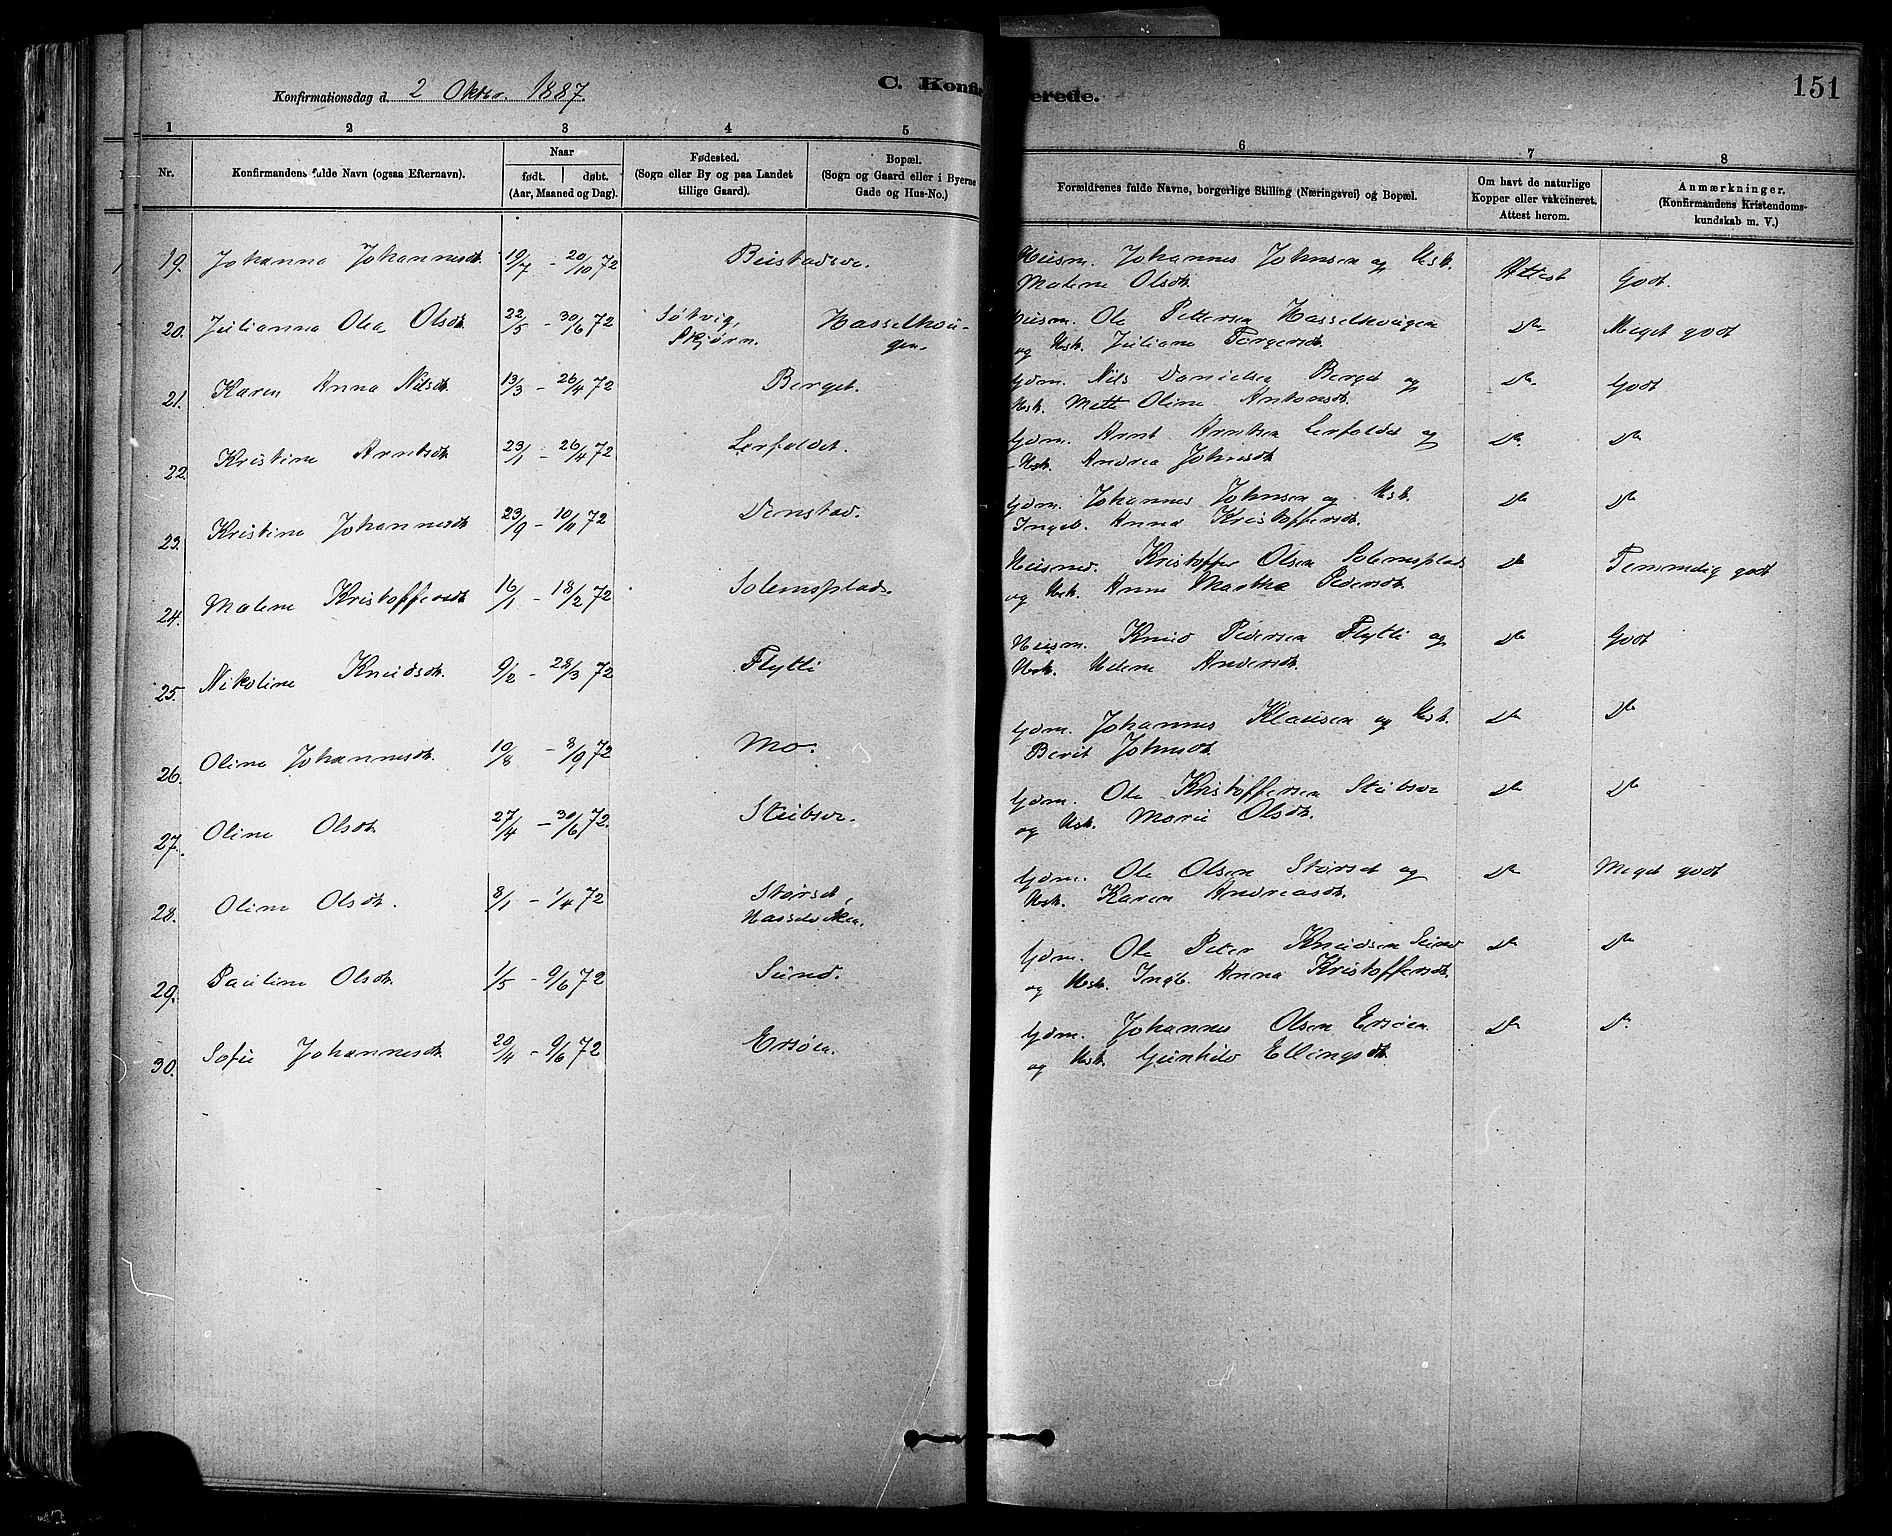 151
Konfirmationsdag d. 2 Oktbr. 1887.
C. Konfir erede.
1 2 3 4 5 6 7 8
Nr.
Konfirmandens fulde Navn (ogsaa Efternavn).
Naar
født. døbt.
(Aar, Maaned og Dag).
Fødested.
(Sogn eller By og paa Landet
tillige Gaard).
Bopæl.
(Sogn og Gaard eller i Byerne
Gade og Hus-No.)
Forældrenes fulde Navne, borgerlige Stilling (Næringsvei) og Bopæl.
Om havt de naturlige
Kopper eller vakcineret.
Attest herom.
Anmærkninger.
(Konfirmandens Kristendoms-
kundskab m. V.)
19. Johanna Johannesdt. 19/7 - 20/10 72 Husm. Johannes Johnsen og Hsk.
Malene Olsdt. Attest Godt.
20. Julianna Olea Olsdt. 22/5 - 30/6 72 Skjørn. Hasselhou-
gen. Husm. Ole Pettersen Hasselhougen
og Hsk. Juliane Torgersdt. Do Meget godt
21. Karen Anna Nilsdt. 13/3 - 26/4 72 Berget. Gdm. Nils Danielsen Berget og
Hsk. Mette Oline Antonsdt. Do Godt
22. Kristine Arntsdt. 23/1 - 26/4 72 Lerfoldet. Gdm. Arnt Arntsen Lerfoldet og
Hsk. Andrea Johnsdt. Do Do
23. Kristine Johannesdt. 23/9 - 10/11 72 Denstad. Gdm. Johannes Johnsen og Hsk.
Ingeb. Anna Kristoffersdt. Do Do
24. Malene Kristoffersdt. 16/1 - 18/2 72 Solemsplads. Husmd. Kristoffer Olsen Solemsplads
og Hsk. Anne Martha Pedersdt. Do Temmelig godt
25. Nikoline Knudsdt. 9/2 - 28/3 72 Flytti Husm. Knud Pedersen Flytti og
Hsk. Helene Andersdt. Do Godt
26. Oline Johannesdt. 10/8 - 8/9 72 Mo. Gdm. Johannes Klausen og Hsk.
Berit Johnsdt. Do Do
27. Oline Olsdt. 27/4 - 30/6 72. Stubsve. Gdm. Ole Kristoffersen Stubsve
og Hsk. Marie Olsdt. Do Do
28. Oline Olsdt. 8/1 - 1/4 72 Størset,
Hasselviken. Gdm. Ole Olsen Størset og
Hsk. Karen Andreasdt. Do Meget godt
29. Pauline Olsdt. 1/5 - 9/6 72 Sund. Gdm. Ole Peter Knudsen Sund
og Hsk. Ingb. Anna Kristoffersdt. Do Do
30. Sofie Johannesdt. 20/4 - 9/6 72 Ersøen. Gdm. Johannes Olsen Ersøen
og Hsk. Gunhild Ellingsdt. Do Do